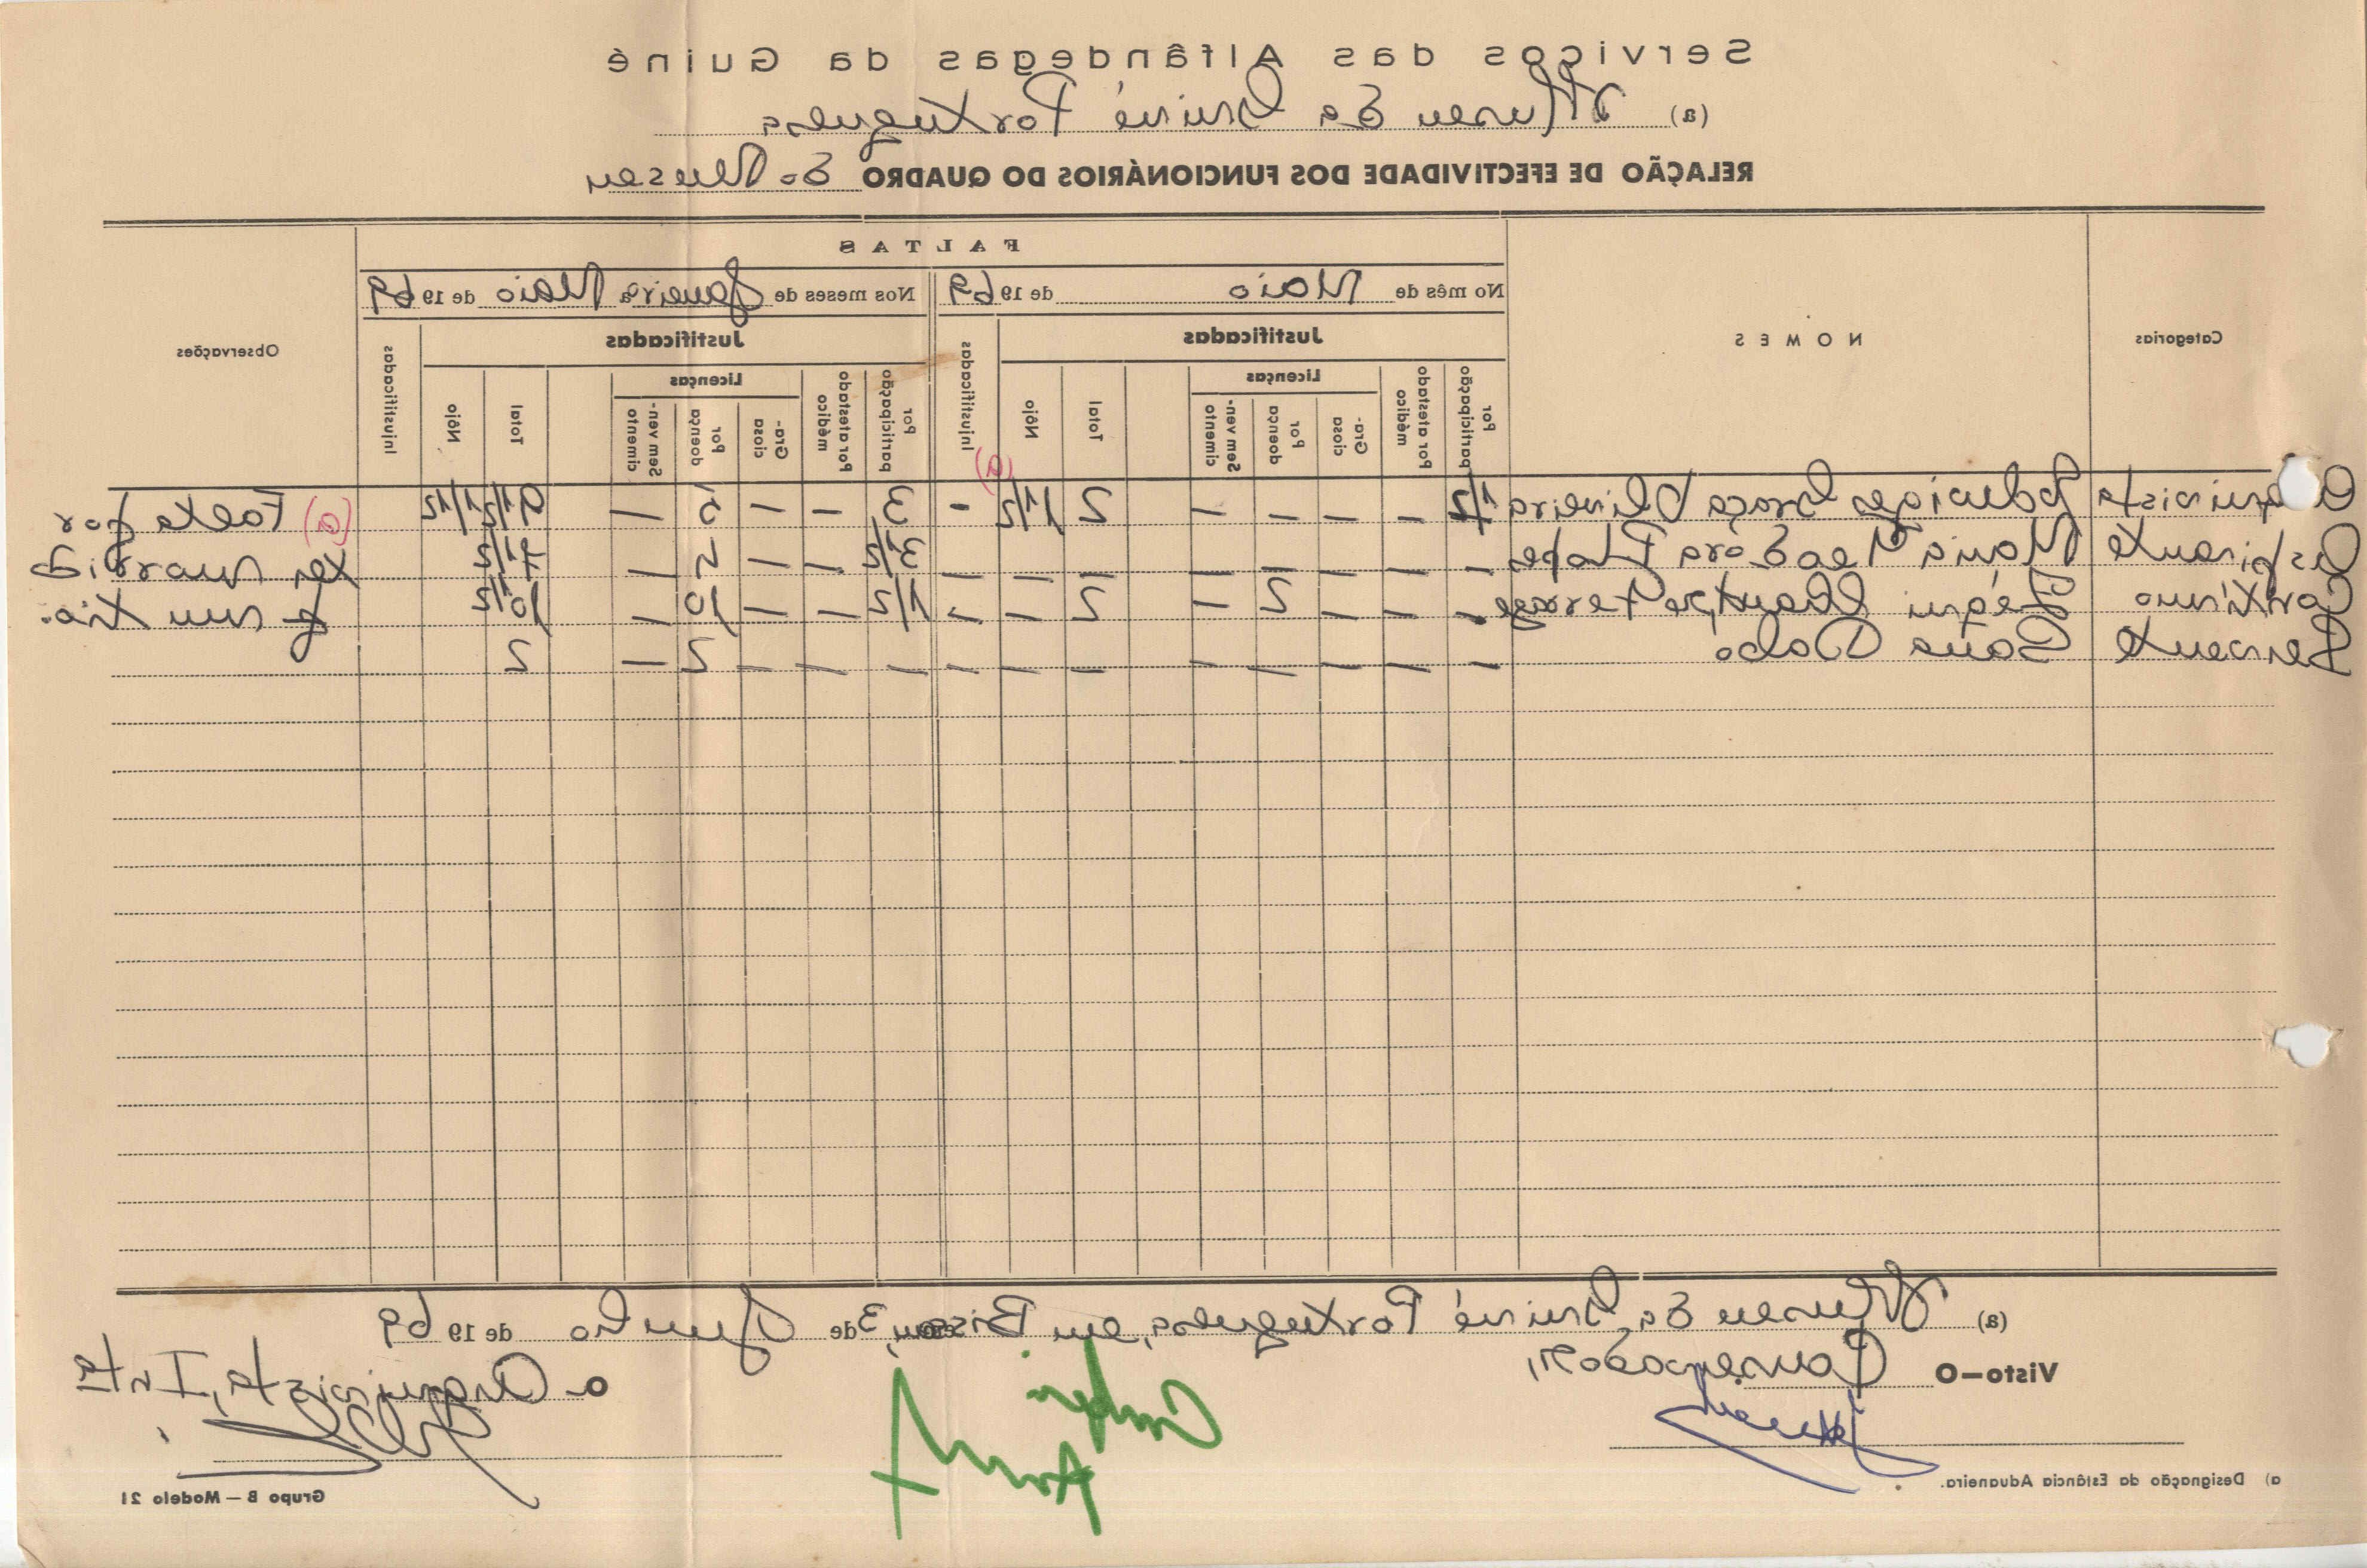 Serviços das Alfândegas da Guiné
(a) Museu da Guiné Portuguesa
RELAÇÃO DE EFECTIVIDADE DOS FUNCIONÁRIOS DO QUADRO do Museu
Categorias
NOMES
FALTAS
No mês de Maio de 1969
Nos meses de Janeiro a Maio de 1969
Observações
Justificadas
Injustificadas
Justificadas
Injustificadas
Por participação
Por atestado médico
Licenças
Graciosa
Por doença
Sem vencimento
Total
Nôjo
Por participação
Por atestado médico
Licenças
Graciosa
Por doença
Sem vencimento
Total
Nôjo
(a)
Arquivista Graça Oliveira 1/2 — — — — 2 1 1/2 - 3 — — 5 — 9 1/2 1 1/2 (a) Falta por
Aspirante Maria — — — — — — — — 3 1/2 — — 4 — 7 1/2 ter morrido
Contínuo — — — 2 — 2 — — 1/2 — — 10 — 10 1/2 um tio.
Servente — — — — — — — — — — — 2 — 2
(a) Museu da Guiné Portuguesa, em Bissau, 3 de Junho de 1969
Visto—O Conservador,
o Arquivista, Int.º
Confere
a) Designação da Estância Aduaneira.
Grupo B — Modelo 21